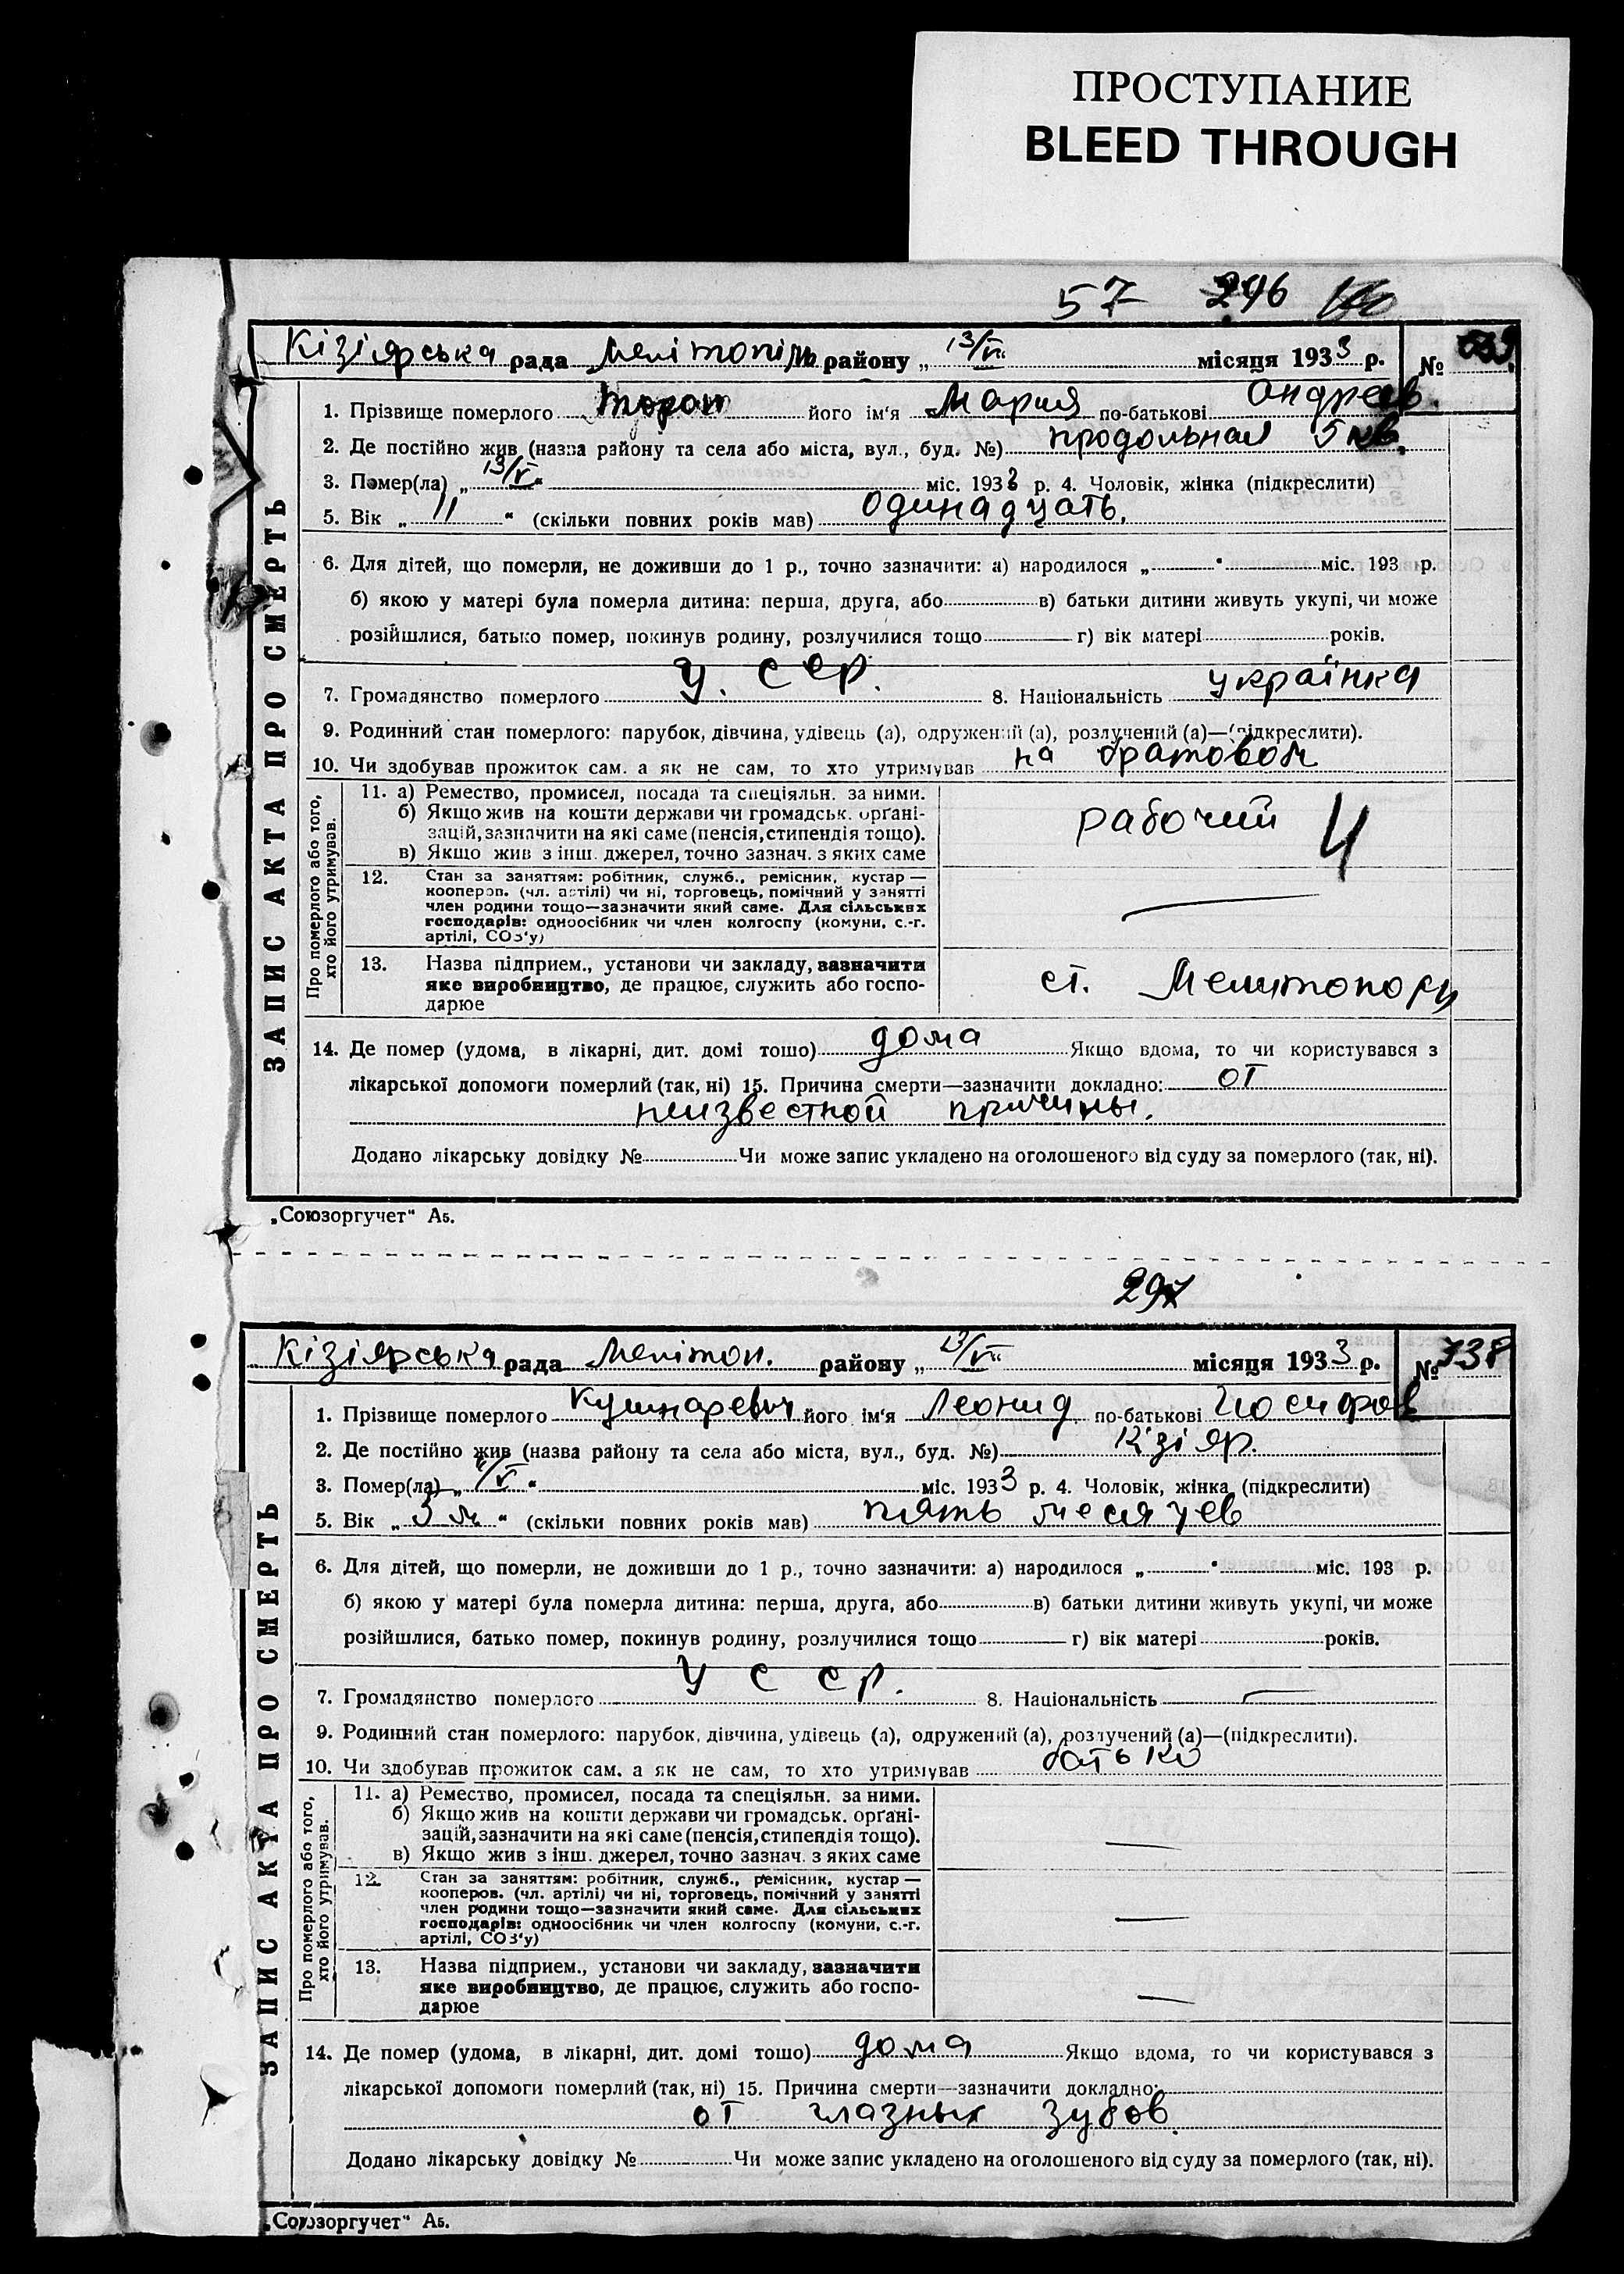 ПРОСТУПАНИЕ
BLEED THROUGH
57 296
Кізіярська рада Мелітопіль району „13/VI“ місяця 1933 р. №
1. Прізвище померлого його ім'я Мария по-батькові Андреев.
2. Де постійно жив (назва району та села або міста, вул., буд. №) продольная 5 кв.
3. Помер(ла) „13/V“ міс. 1933 р. 4. Чоловік, жінка (підкреслити)
5. Вік „11“ (скільки повних років мав) одинадцать.
6. Для дітей, що померли, не доживши до 1 р., точно зазначити: а) народилося „ “ міс. 193 р.
б) якою у матері була померла дитина: перша, друга, або в) батьки дитини живуть укупі, чи може
розійшлися, батько помер, покинув родину, розлучилися тощо г) вік матері років.
7. Громадянство померлого У. ССР. 8. Національність українка
9. Родинний стан померлого: парубок, дівчина, удівець (а), одружений (а), розлучений (а)—(підкреслити).
10. Чи здобував прожиток сам. а як не сам, то хто утримував на
ЗАПИС АКТА ПРО СМЕРТЬ
Про померлого або того, хто його утримував.
11. а) Ремество, промисел, посада та спеціяльн. за ними.
б) Якщо жив на кошти держави чи громадськ. орґані-
зацій, зазначити на які саме (пенсія, стипендія тощо).
в) Якщо жив з інш. джерел, точно зазнач. з яких саме
рабочий
12. Стан за заняттям: робітник, служб., ремісник, кустар —
кооперов. (чл. артілі) чи ні, торговець, помічний у занятті
член родини тощо—зазначити який саме. Для сільських
господарів: одноосібник чи член колгоспу (комуни, с.-г.
артілі, СОЗ'у)
13. Назва підприєм., установи чи закладу, зазначити
яке виробництво, де працює, служить або госпо-
дарює
ст.
14. Де помер (удома, в лікарні, дит. домі тощо) дома Якщо вдома, то чи користувався з
лікарської допомоги померлий (так, ні) 15. Причина смерти—зазначити докладно: от
неизвестной причины.
Додано лікарську довідку № Чи може запис укладено на оголошеного від суду за померлого (так, ні).
„Союзоргучет“ А5.
297
Кізіярська рада Мелітоп. району „13/VI“ місяця 1933 р. № 738
1. Прізвище померлого Кушнаревич його ім'я Леонид по-батькові Иосифов
2. Де постійно жив (назва району та села або міста, вул., буд. №) Кізіяр.
3. Помер(ла) міс. 1933 р. 4. Чоловік, жінка (підкреслити)
5. Вік „5 м“ (скільки повних років мав) пять месяцев
6. Для дітей, що померли, не доживши до 1 р., точно зазначити: а) народилося „ “ міс. 193 р.
б) якою у матері була померла дитина: перша, друга, або в) батьки дитини живуть укупі, чи може
розійшлися, батько помер, покинув родину, розлучилися тощо г) вік матері років.
7. Громадянство померлого УССР. 8. Національність —
9. Родинний стан померлого: парубок, дівчина, удівець (а), одружений (а), розлучений (а)—(підкреслити).
10. Чи здобував прожиток сам. а як не сам, то хто утримував батько
ЗАПИС АКТА ПРО СМЕРТЬ
Про померлого або того, хто його утримував.
11. а) Ремество, промисел, посада та спеціяльн. за ними.
б) Якщо жив на кошти держави чи громадськ. орґані-
зацій, зазначити на які саме (пенсія, стипендія тощо).
в) Якщо жив з інш. джерел, точно зазнач. з яких саме
12. Стан за заняттям: робітник, служб., ремісник, кустар —
кооперов. (чл. артілі) чи ні, торговець, помічний у занятті
член родини тощо—зазначити який саме. Для сільських
господарів: одноосібник чи член колгоспу (комуни, с.-г.
артілі, СОЗ'у)
13. Назва підприєм., установи чи закладу, зазначити
яке виробництво, де працює, служить або госпо-
дарює
14. Де помер (удома, в лікарні, дит. домі тощо) дома Якщо вдома, то чи користувався з
лікарської допомоги померлий (так, ні) 15. Причина смерти—зазначити докладно:
от глазных зубов.
Додано лікарську довідку № Чи може запис укладено на оголошеного від суду за померлого (так, ні).
„Союзоргучет“ А5.